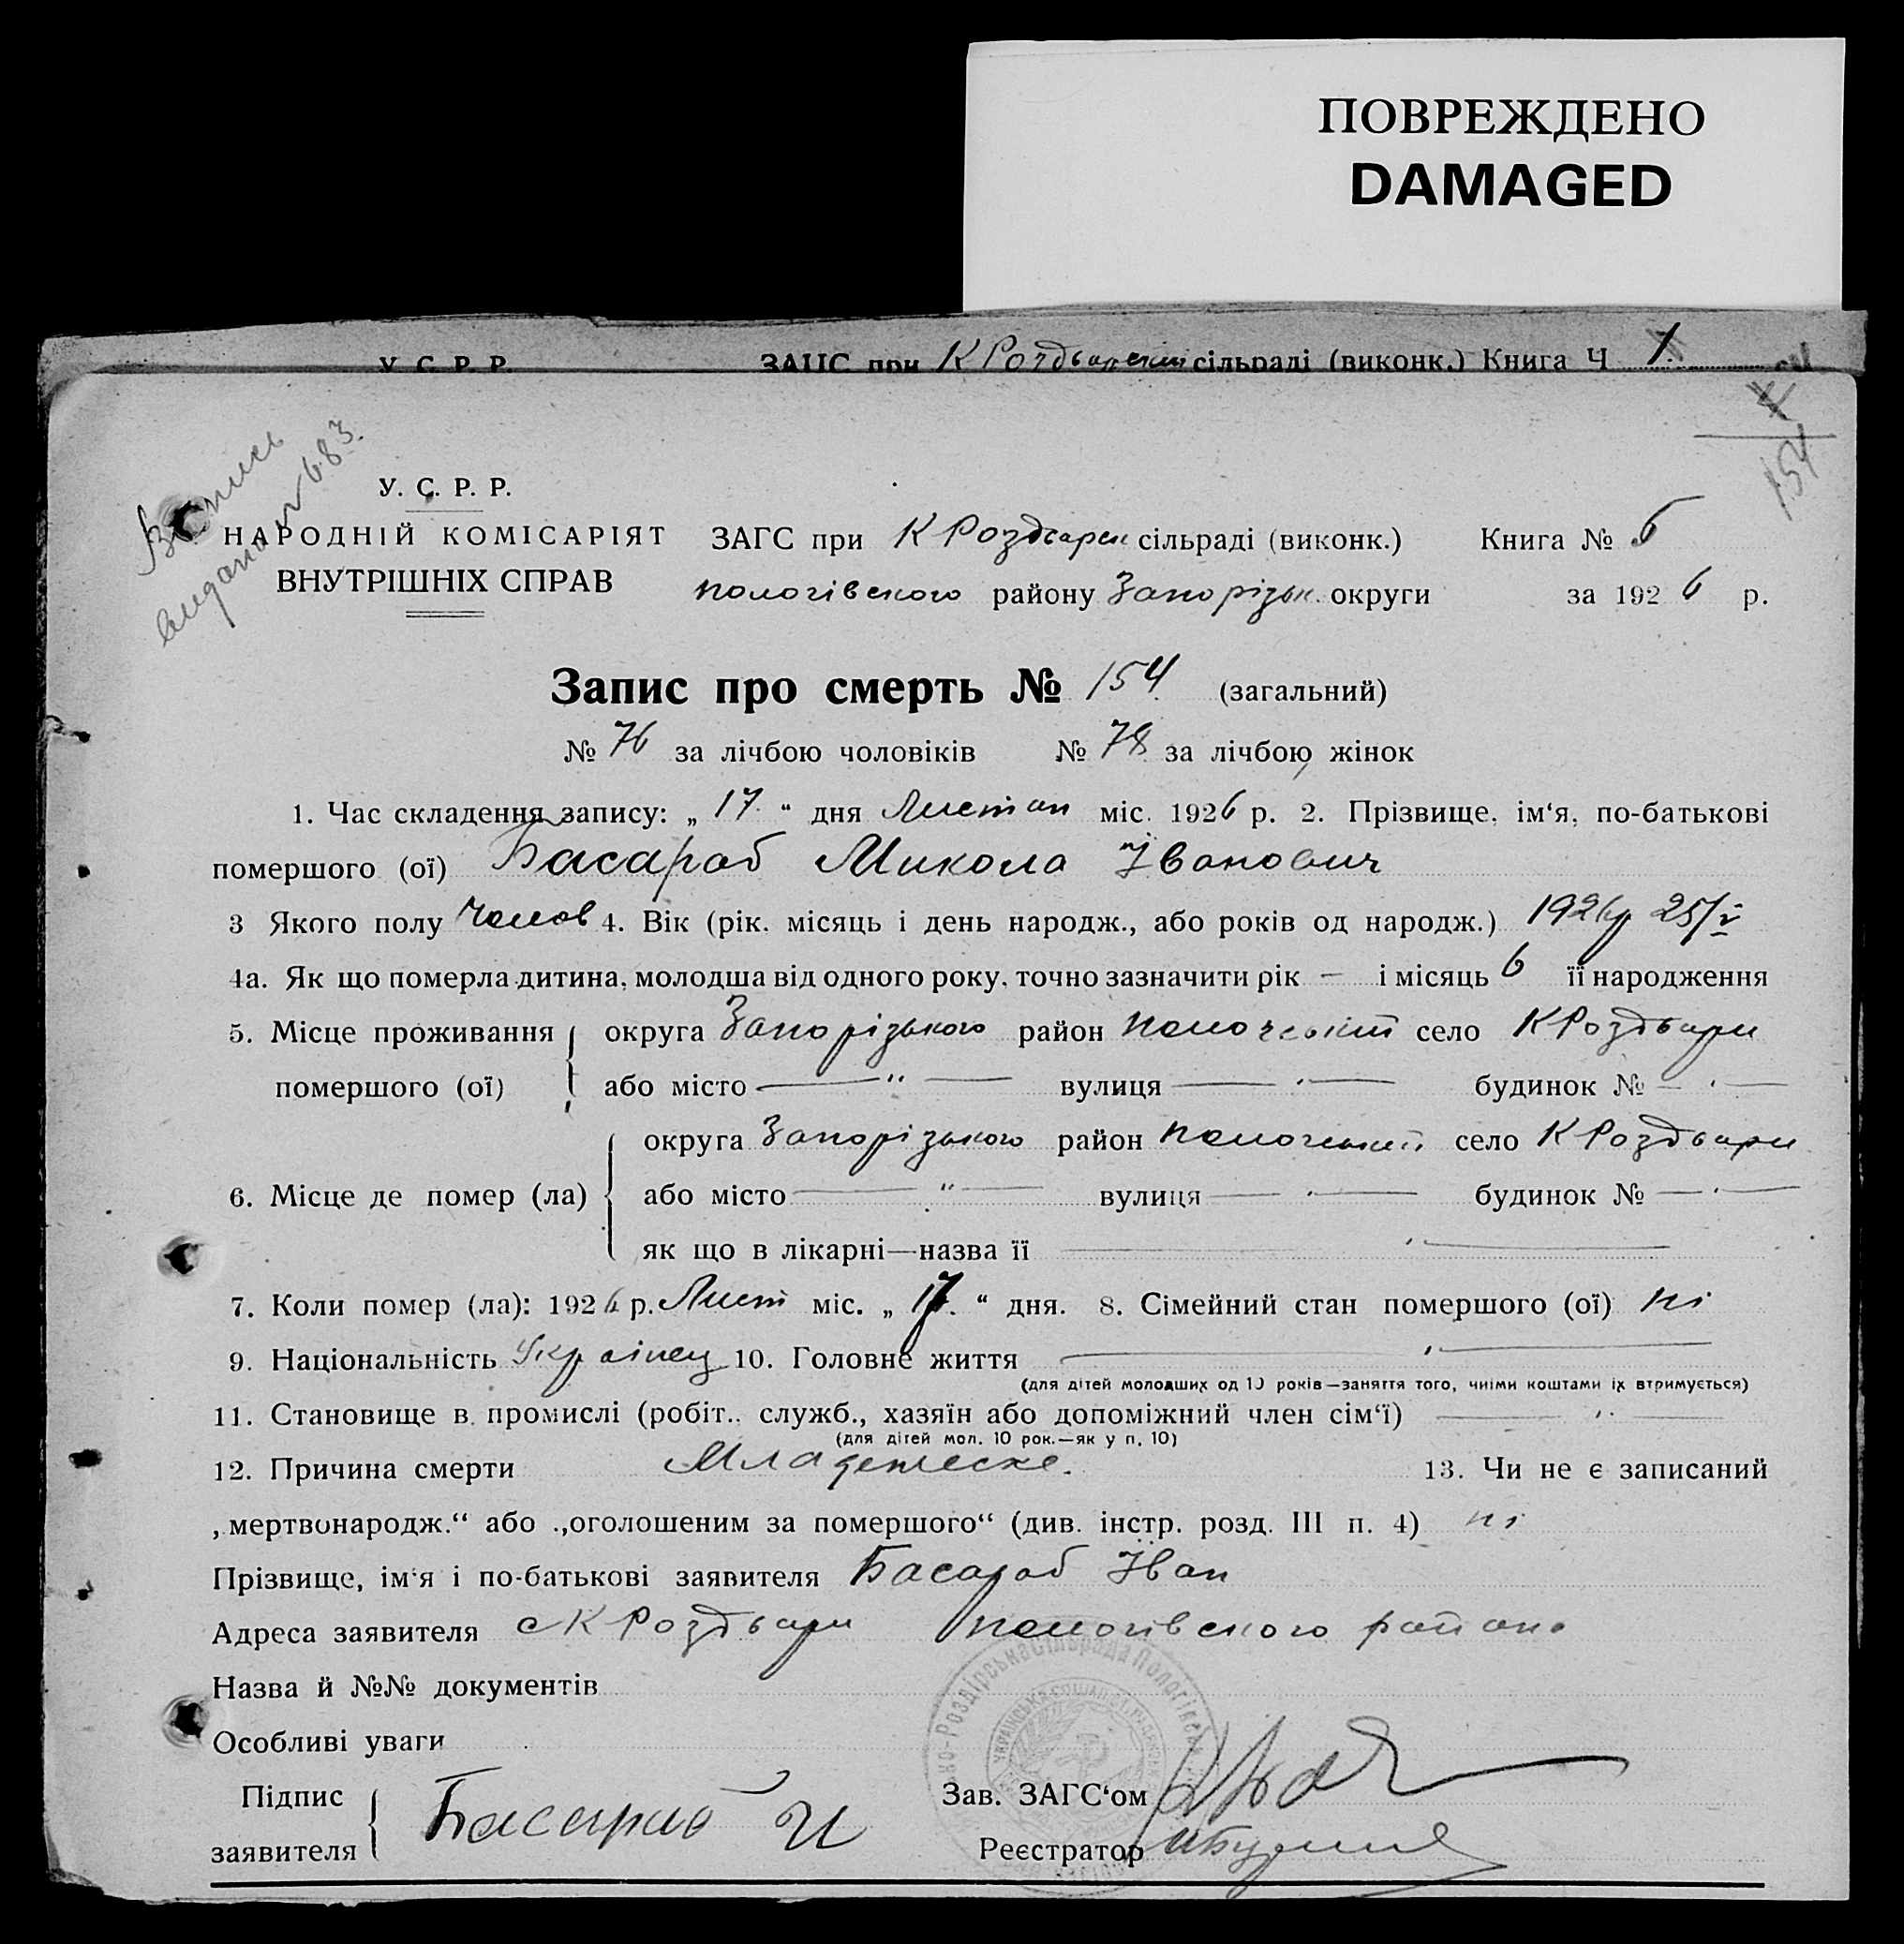 ПОВРЕЖДЕНО
DAMAGED
У. С. Р. Р. ЗАПС при К Роздварский сільраді (виконк.) Книга Ч 1
154
Выпись
выдана № 683.
У. С. Р. Р.
НАРОДНІЙ КОМІСАРІЯТ
ВНУТРІШНІХ СПРАВ
ЗАГС при К Роздварск сільраді (виконк.) Книга № 6
пологівского району Запорізьк. округи за 1926 р.
Запис про смерть № 154 (загальний)
№ 76 за лічбою чоловіків № 78 за лічбою жінок
1. Час складення запису: „ 17 “ дня Листоп міс. 1926 р. 2. Прізвище, ім‘я, по-батькові
помершого (ої) Басараб Микола Іванович
3 Якого полу Чолов 4. Вік (рік. місяць і день народж., або років од народж.) 1926р 25/V
4а. Як що померла дитина, молодша від одного року, точно зазначити рік — і місяць 6 її народження
5. Місце проживання округа Запорізького район пологський село К Роздвари
помершого (ої) або місто — " — вулиця — " — будинок № — " —
округа Запорізького район пологський село К Роздвари
6. Місце де помер (ла) або місто — " — вулиця — " — будинок № — " —
як що в лікарні—назва її — " —
7. Коли помер (ла): 1926 р. Лист міс. „ 17. “ дня. 8. Сімейний стан помершого (ої) ні
9. Національність Украінец 10. Головне життя — " —
(для дітей молодших од 10 років—заняття того, чиїми коштами їх втримується)
11. Становище в промислі (робіт., служб., хазяїн або допоміжний член сім‘ї) — " —
(для дітей мол. 10 рок.—як у п. 10)
12. Причина смерти Младенческе. 13. Чи не є записаний
„мертвонародж.“ або „оголошеним за помершого“ (див. інстр. розд. III п. 4) ні
Прізвище, ім‘я і по-батькові заявителя Басараб Іван
Адреса заявителя с К Роздвари пологівского району
Назва й №№ документів
Особливі уваги
Підпис
заявителя Басараб И
Зав. ЗАГС‘ом
Реєстратор
Роздірська Сільрада Пологівськ